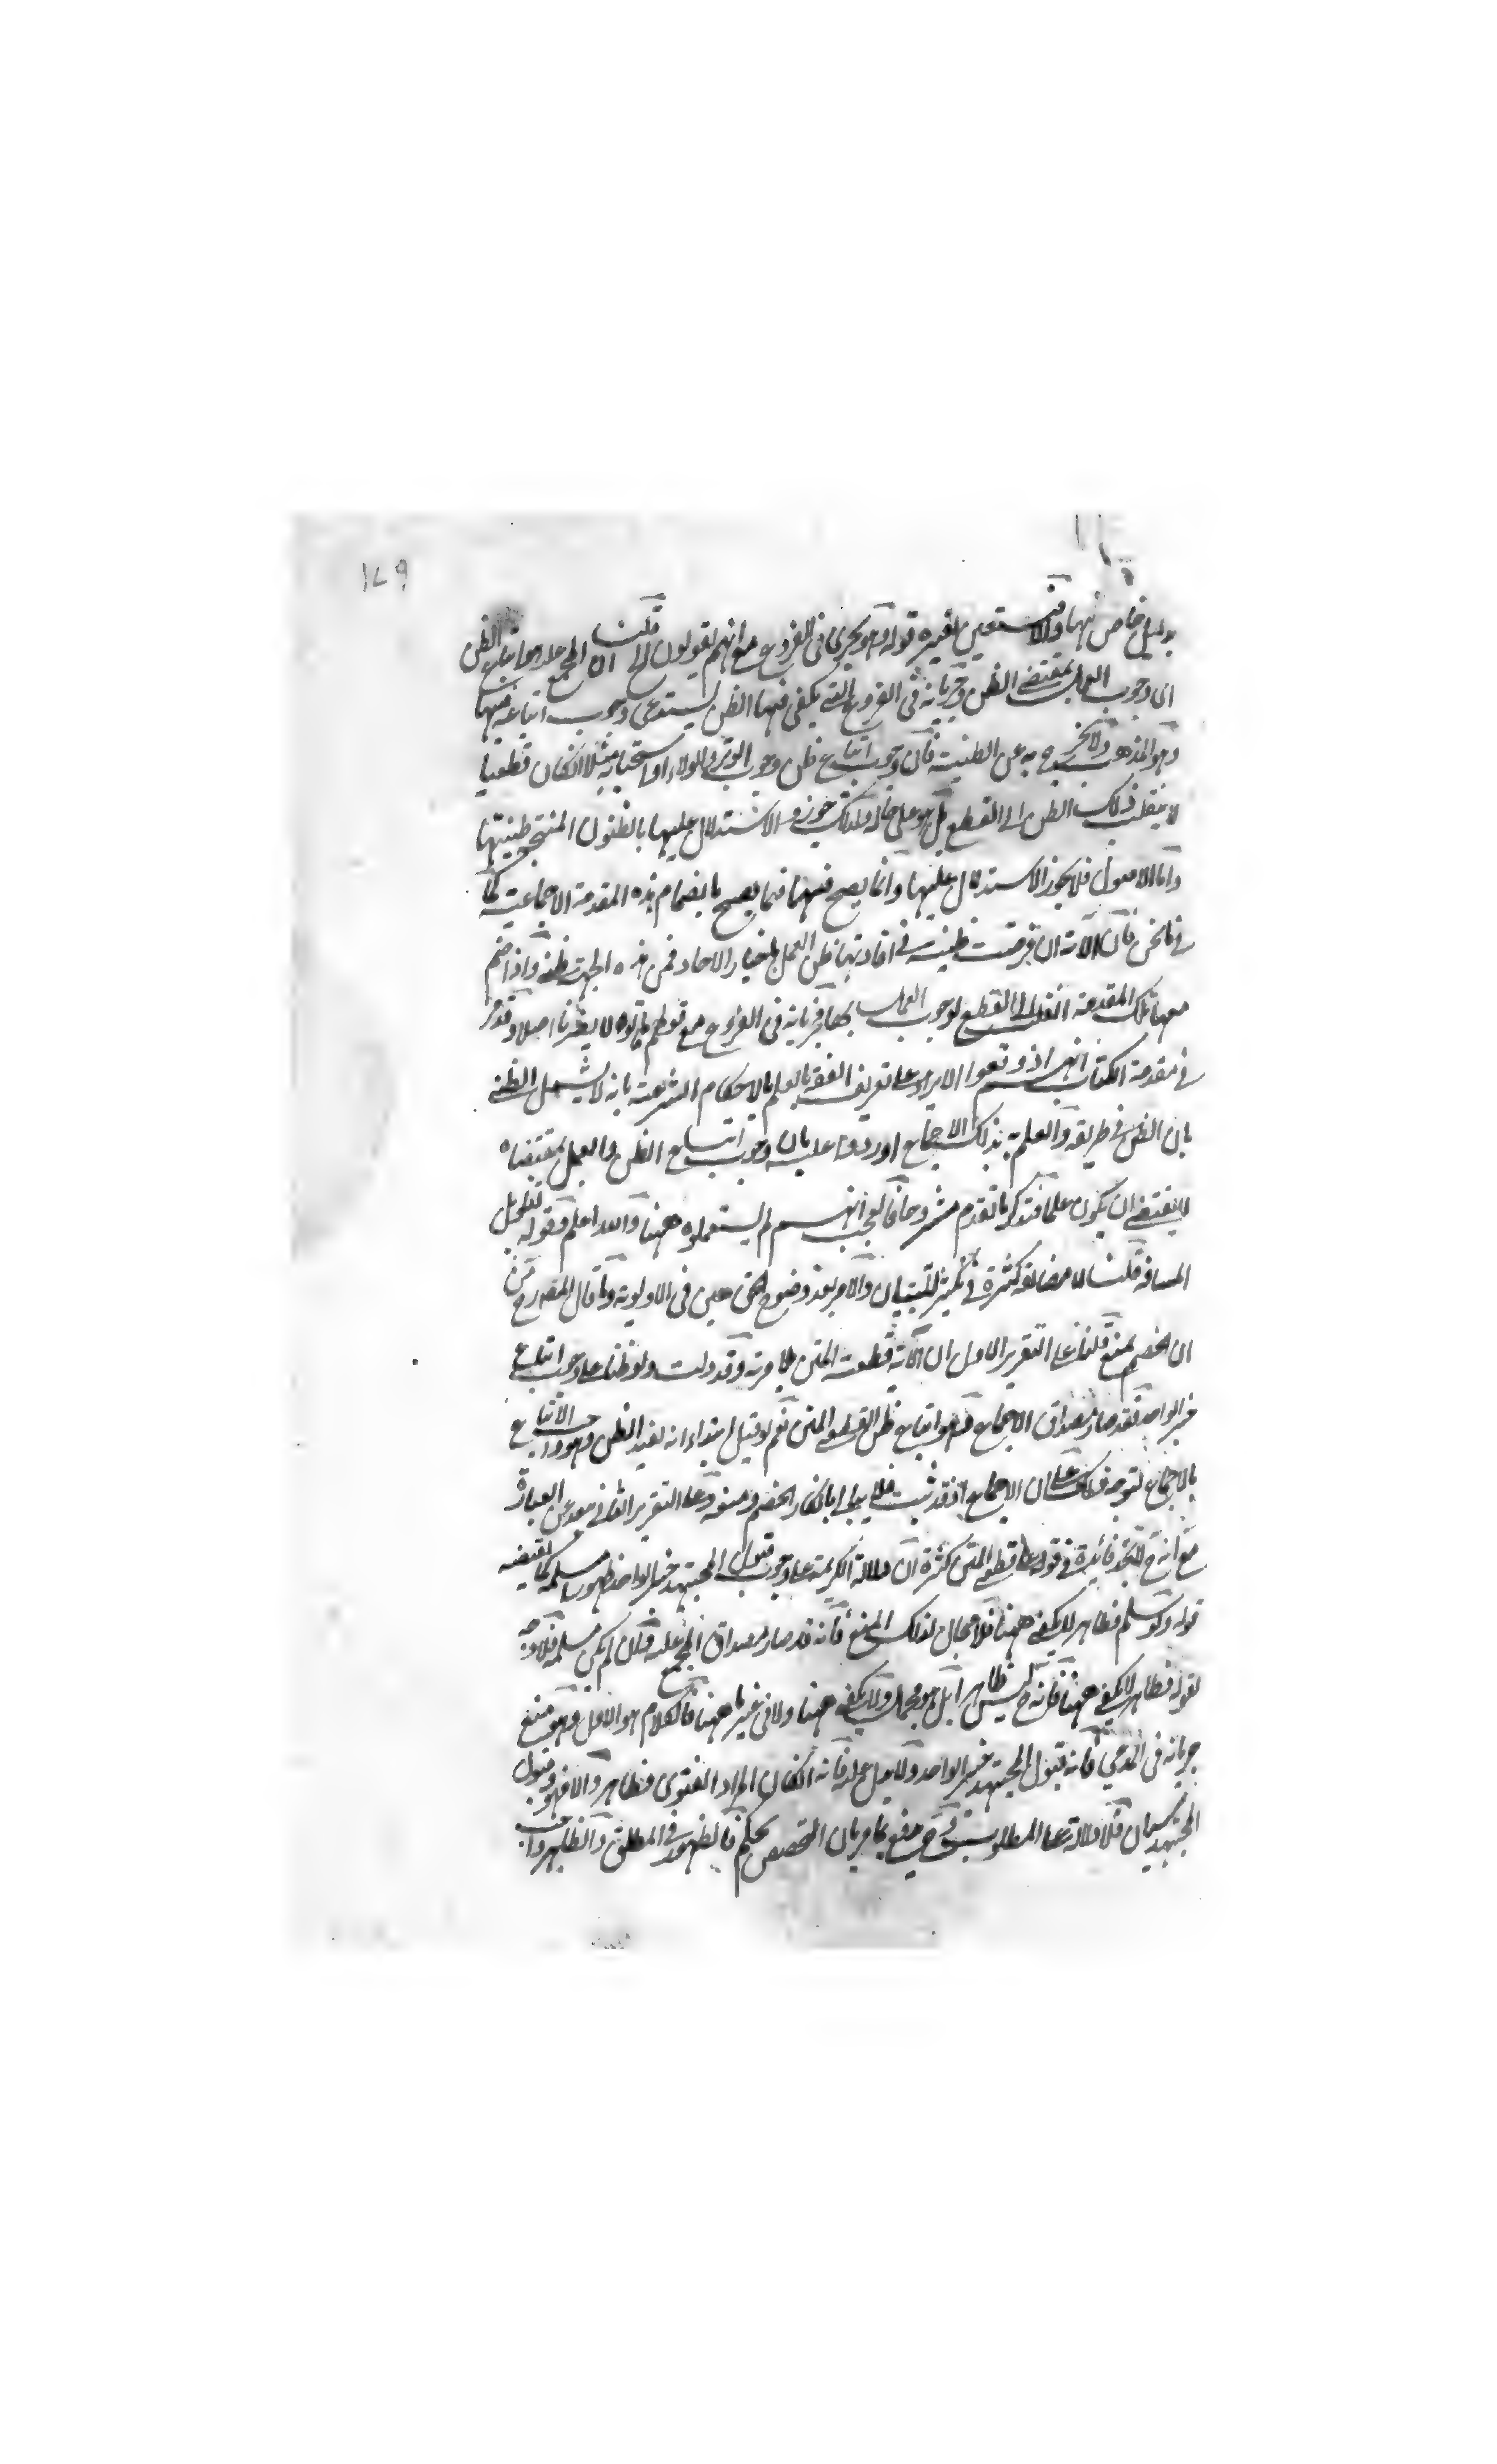 ١٤٩
بدليل خاص فيها والا فتستعين بغيره قوله وهو يجري في الفروع مع انهم يقولون الى قلنا ان المجمع عليه هو اتباع الظن
اى وجوب العمل بمقتضى الظن وجريانه في الفروع التي يكفي فيها الظن يستدعي وجوب اتباعه فيها
وهو المذهب ولا يخرج به عن الظنية فان وجوب اتباع ظن وجوب الوتر والولاء او استحبابه مثلا ان كان قطعيا
لا ينقلب ذلك الظن الى القطع بل هو على حاله ولذلك جوزوا الاستدلال عليها بالظنون المنتجة ظنيتها
واما الاصول فلا يجوز الاستدلال عليها وانما يصح فيها فيما يصح بانضمام هذه المقدمة الاجماعية كما
في ما نحن فان الآية ان فرضت ظنية في افادتها ظن العمل باخبار الاحاد فمن هذه الجهة ظنية واذا ضم
معها تلك المقدمة انقلب الى القطع لوجوب العمل بها فجريانه في الفروع مع قولهم لا يضرنا اصلا وقد مر
في مقدمة الكتاب انهم اذ دفعوا الايراد على تعريف الفقه بالعلم بالاحكام الشرعية بانه لا يشمل الظني
بان الظن في طريقه والعلم به بذلك الاجماع اورد عليه بان وجوب اتباع الظن والعمل بمقتضاه
لا يقتضي ان يكون علما فتذكر ما تقدم مشروحا فالعجب انهم لم يستعملوه ههنا والله اعلم قوله تطويل
المسافة قلنا لا مضايقة كثيرة في تكثير للتبيان والامر بعد وضوح الحق هين في الاولوية وما قال المصه رح من
ان الخصم يمنع قلنا على التقرير الاول ان الآية قطعية المتن بلا مرية وقد دلت ولو ظنا على وجوب اتباع
خبر الواحد فقد صار مصداق الاجماع فهو اتباع ظن القطعي المتن نعم لو قيل ابتداء انه يفيد الظن وهو واجب الاتباع
بالاجماع لتوجه ذلك على ان الاجماع اذ قد ثبت فلا يبالى بانكار الخصم ومنعه وعلى التقرير الثاني بعد عن العبارة
مع انه ح لا تجد فائدة في قوله على قطعي المتن كثرة ان دلالة الكريمة على وجوب قبول المجتهد خبر الواحد ظهورا مسلمة كما يقتضيه
قوله ولو سلم فظاهر لا يكفي ههنا فلا مجال لذلك المنع فانه قد صار مصداق المجمع عليه وان لم يكن مسلمة فلا وجه
لقوله فظاهر لا يكفي ههنا فانه ح ليس ظاهرا بل هو مجمل ولا يكفي ههنا ولا في غيرها ههنا فالكلام هو الاول وهو منع
جريانه في المدعي فانه بقبول المجتهد خبر الواحد ولا يدل عليه فانه ان كان المراد الفتوى فظاهر والا فهو وقبول
المجتهد سيان فلا دلالة على المطلوب ح مدفع بما مر بان التخصيص تحكم فالظهور في المطلق والظاهر واجب